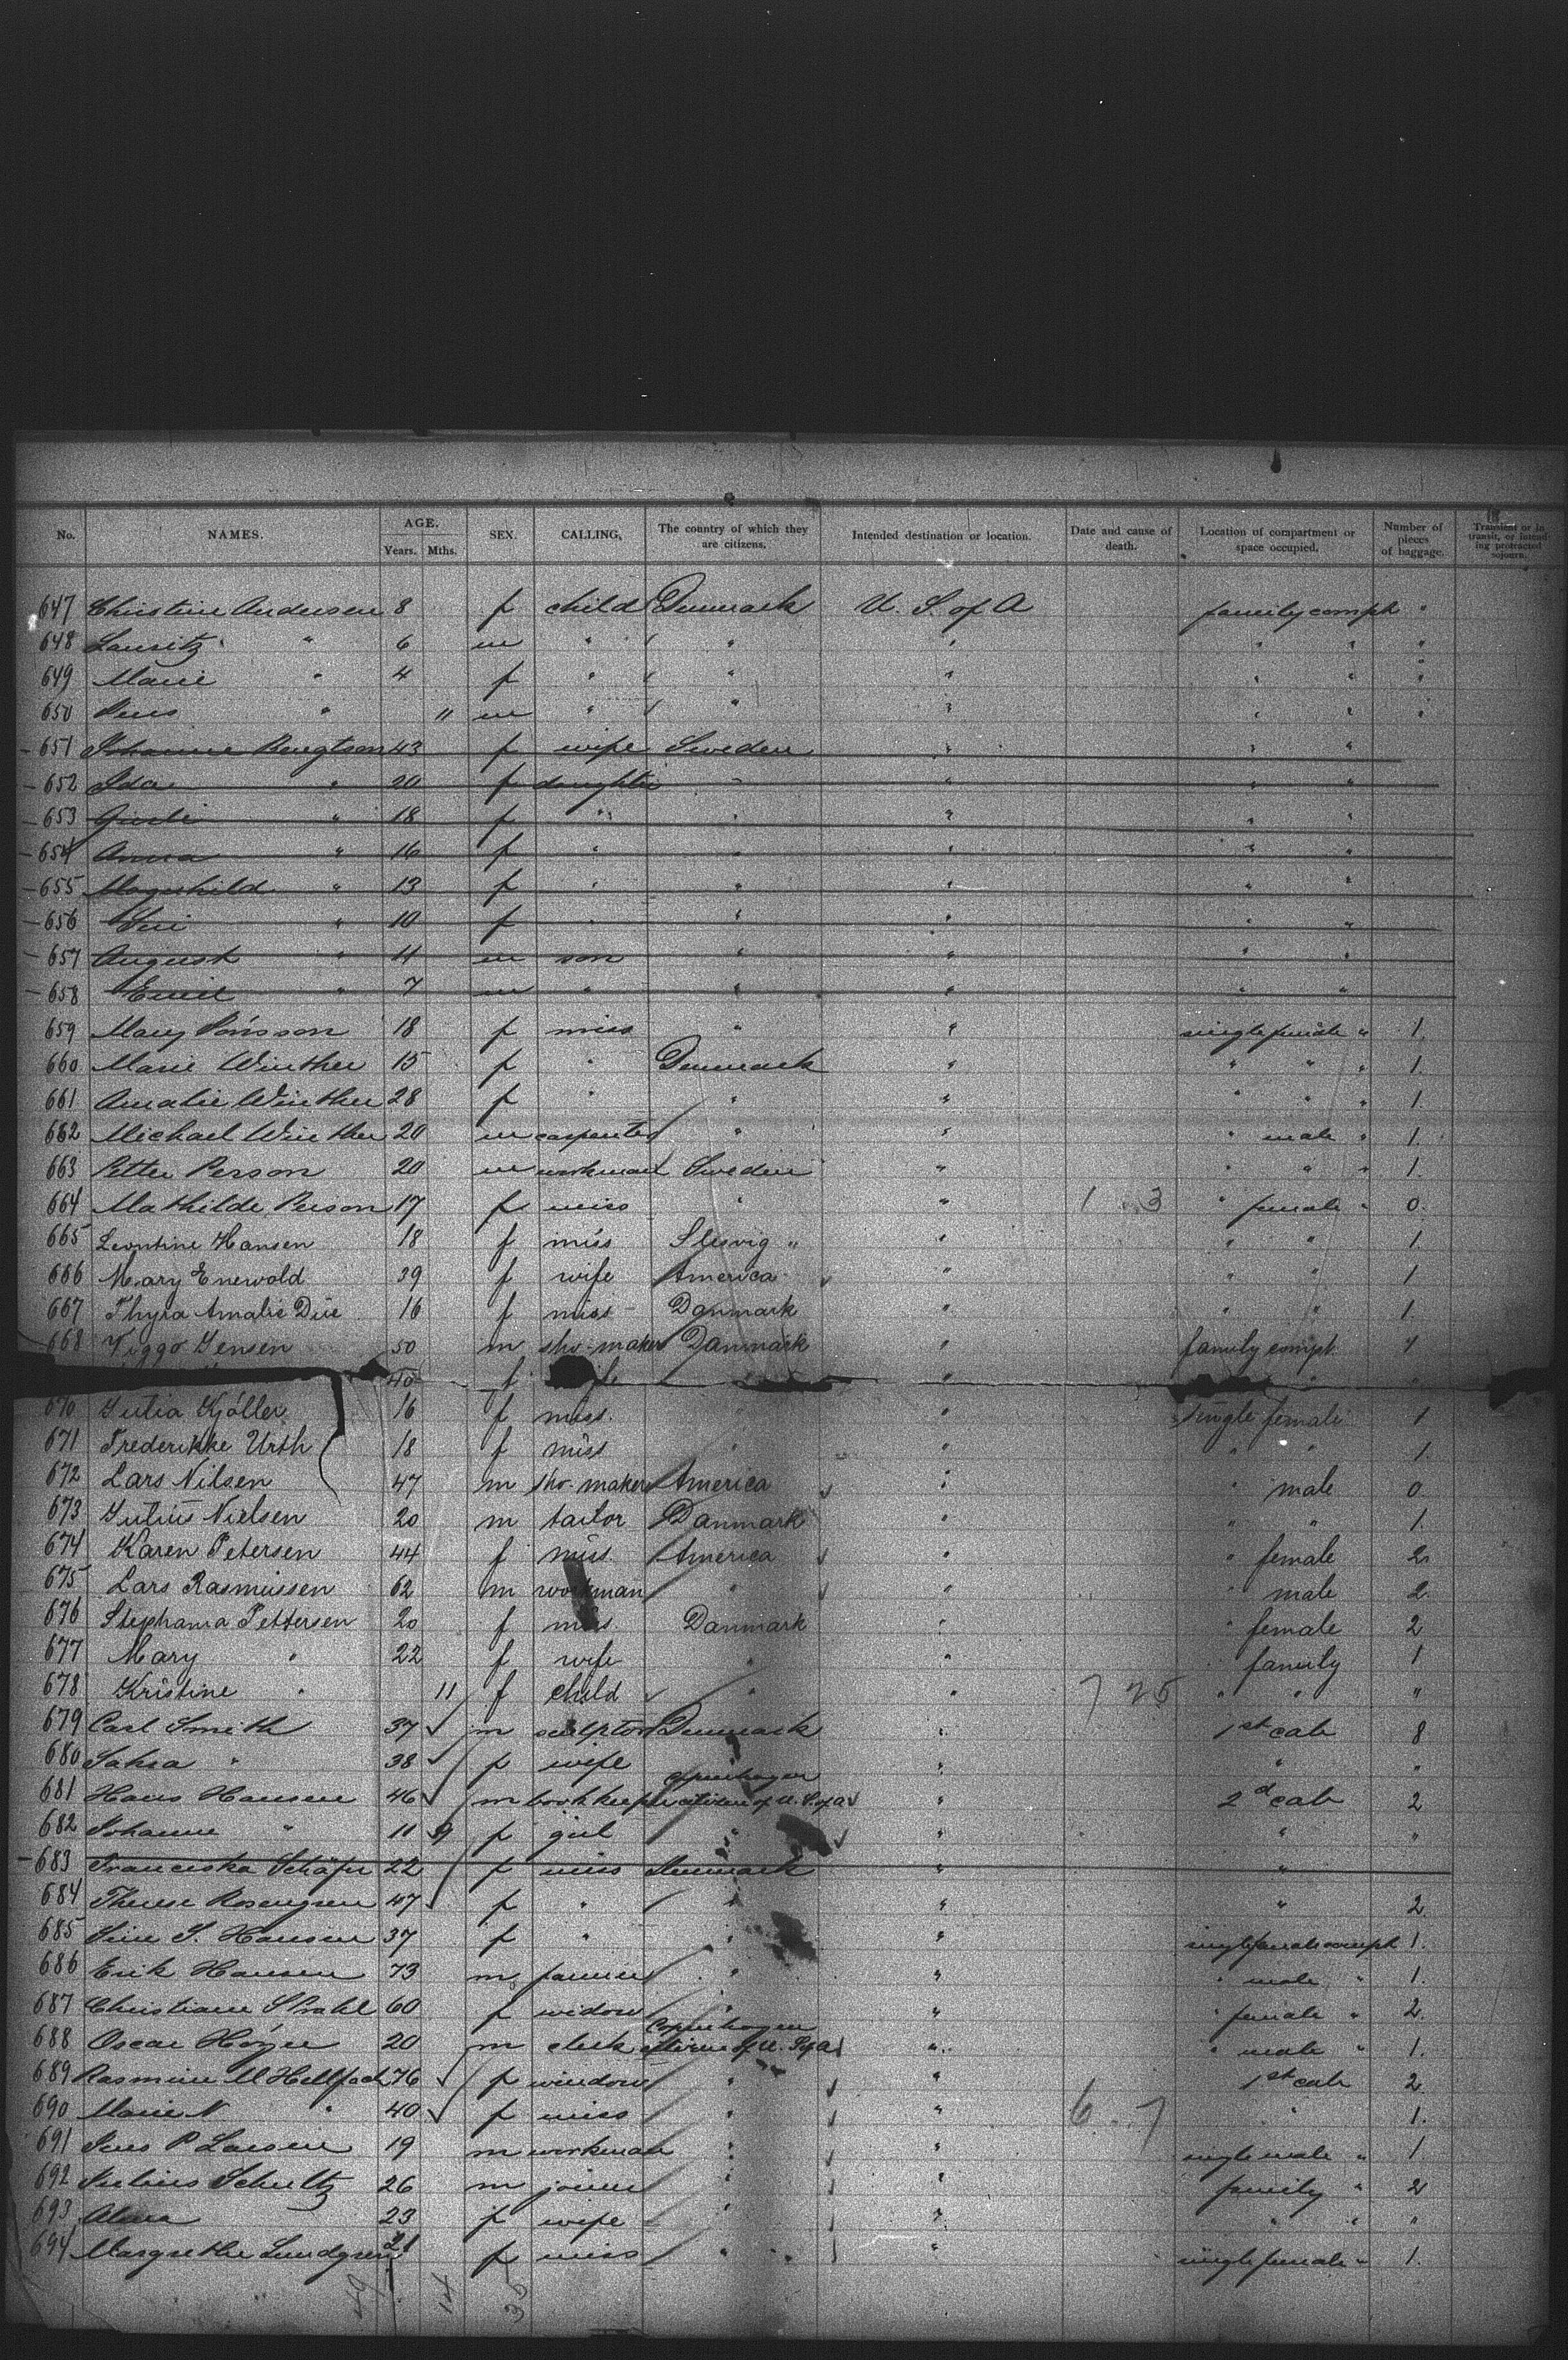 No. NAMES. AGE. Years. Mths. SEX. CALLING, The country of which they are citizens. Intended destination or location. Date and cause of death. Location of compartment or space occupied. Number of pieces of baggage. Transient or in transit, or intend ing protracted sojourn.
647 Christine Andersen 8 f child Denmark U. S. of A family compt "
648 Lauritz " 6 m " " " " " "
649 Marie " 4 f " " " " " "
650 Jens " 11 m " " " " " "
651 Johanne Bengtson 43 f wife Sweden " " "
652 Ida " 20 f daughter " " " "
653 " 18 f " " " " "
654 Anna " 16 f " " " " "
655 " 13 f " " " " "
656 Siri " 10 f " " " " "
657 August " 11 m son " " " "
658 Emil " 7 m " " " " "
659 Mary Pönsson 18 f miss " " single female " 1.
660 Marie Winther 15 f " Denmark " " " " 1.
661 Amalie Winther 28 f " " " " " " 1.
662 Michael Winther 20 m carpenter " " " male " 1.
663 Petter Person 20 m workman Sweden " " " " 1.
664 Mathilde Person 17 f miss " " 1 3 " female " 0.
665 Leontine Hansen 18 f miss Slesvig " " " " 1.
666 Mary Enewold 39 f wife America " " " 1
667 Thyra Amalie Due 16 f miss Danmark " " " 1.
668 Viggo Jensen 50 m sho-maker Danmark " family compt.
40 f wife " "
670 Julia Kjöller 16 f miss. " " single female 1
671 Frederikke Urth 18 f miss " " " " 1.
672 Lars Nilsen 47 m sho-maker America " " male 0
673 Julius Nielsen 20 m tailor Danmark " " " 1.
674 Karen Petersen 44 f miss. America " " female 2
675 Lars Rasmussen 62 m workman " " " male 2.
676 Stephania Pettersen 20 f miss. Danmark " " female 2
677 Mary " 22 f wife " " family 1
678 Kristine " 11 f child " " 7 25 " " "
679 Carl Smith 37 m sculptor Denmark " 1st cab 8
680 " 38 f wife " " "
Copenhagen
681 Hans Hansen 46 m bookkeeper citizen of U. S. of A " 2d cab 2
682 Johanne " 11 9 f girl " " " "
683 Franciska Schäfer 22 f miss Denmark " "
684 Therese Rosengren 47 f " " " " 2
685 Sine S. Hansen 37 f " " " single female compt 1.
686 Erik Hansen 73 m farmer " " " male " 1.
687 Christiane Strahl 60 f widow " " " female " 2.
Copenhagen
688 Oscar Höyer 20 m clerk citizen of U. S. of A " " male " 1.
689 Rasmine M Hellfach 76 f window " " 1st cab 2
690 Marie N " 40 f miss " " 6 7 " 1.
691 Jens P Larsen 19 m workman " " single male " 1.
692 Julius Schultz 26 m joiner " " family " 2
693 Alma 23 f wife " " " " "
694 Margrethe Lundgren 21 f miss " " single female " 1.